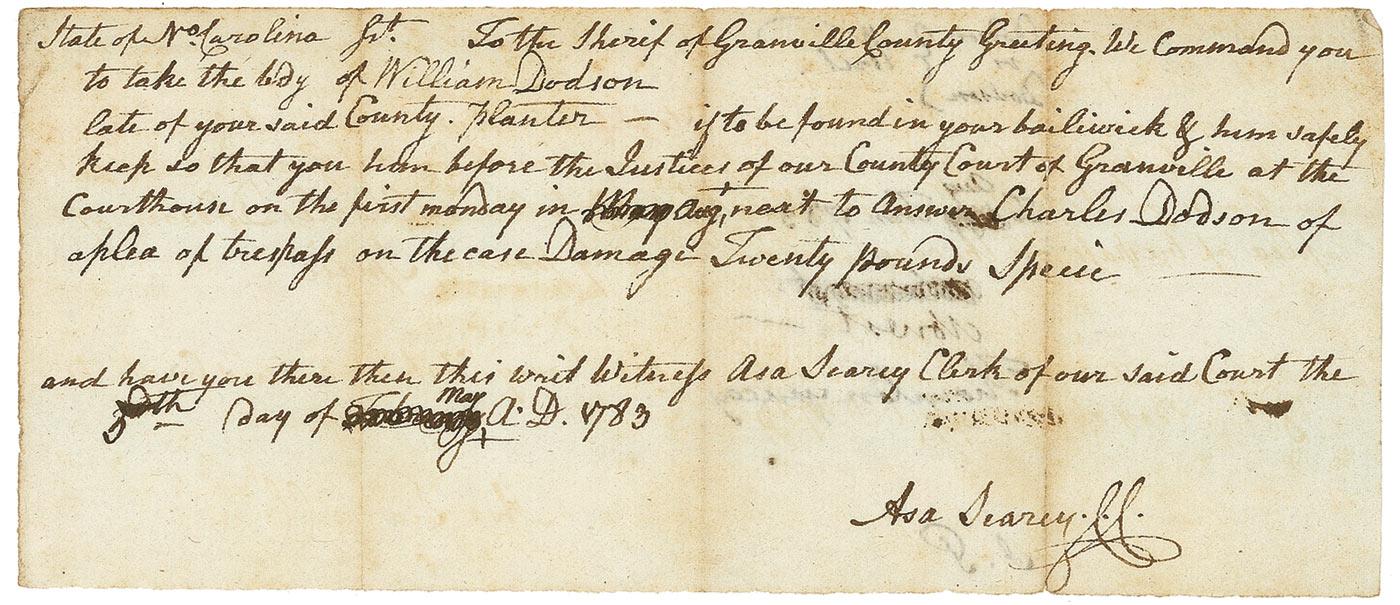 State of No. Carolina Sst. To the Sherif of Granville County Greeting. We Command you
to take the body of William Dodson
late of your said County. Planter — if to be found in your bailiwick & him safely
keep so that you him before the Justices of our County Court of Granville at the
Courthouse on the first monday in May Augt next to Answer Charles Dodson of
a plea of trespass on the case Damage Twenty pounds Specie
and have you there then this writ Witness Asa Searcy Clerk of our said Court the
5th day of February May A. D. 1783
Asa Searcy. C. C.